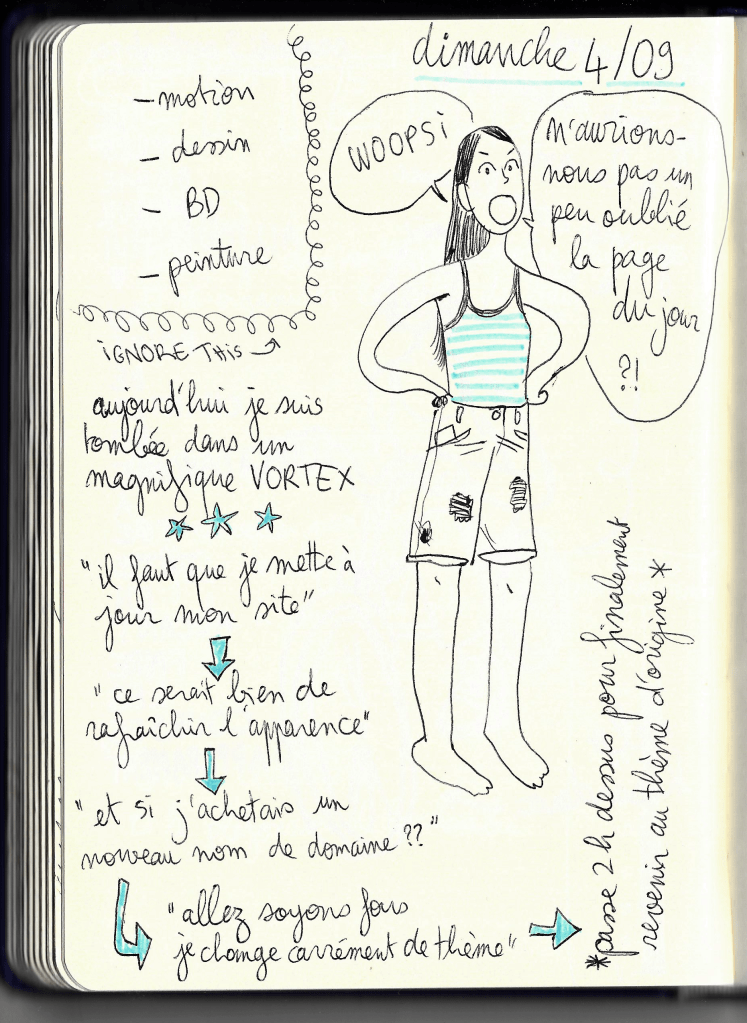 dimanche 4/09
– motion
– dessin
– BD
– peinture
iGNORE THIS
WOOPSi
n'aurions-
nous pas un
peu oublié
la page
du jour
?!
aujourd'hui je suis
tombée dans un
magnifique VORTEX
"il faut que je mette à
jour mon site"
"ce serait bien de
rafraîchir l'apparence"
"et si j'achetais un
nouveau nom de domaine ??"
"allez soyons fous
je change carrément de thème"
*passe 2h dessus pour finalement
revenir au thème d'origine*